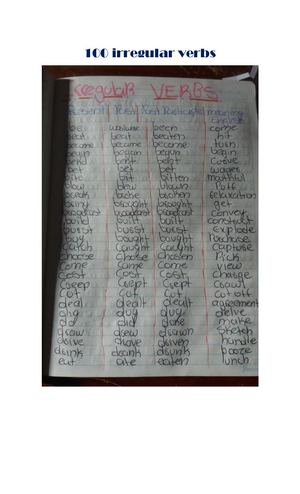 100 irregular verbs
Irregular VERBS
Present Past Past Participle meaning
be was/were been come
beat beat beaten hit
become became become turn
begin began begun begin
bend bent bent curve
bet bet bet wager
bite bit bitten mouthful
blow blew blown Puff
break broke broken relaxation
bring brought brought get
broadcast broadcast broadcast convey
build built built construct
burst burst burst explode
buy bought bought Purchase
catch caught caught capture
choose chose chosen Pick
come came come view
cost cost cost charge
creep crept crept crawl
cut cut cut cut off
deal dealt dealt agreement
dig dug dug delve
do did done make
draw drew drawn stretch
drive drove driven handle
drink drank drunk booze
eat ate eaten lunch